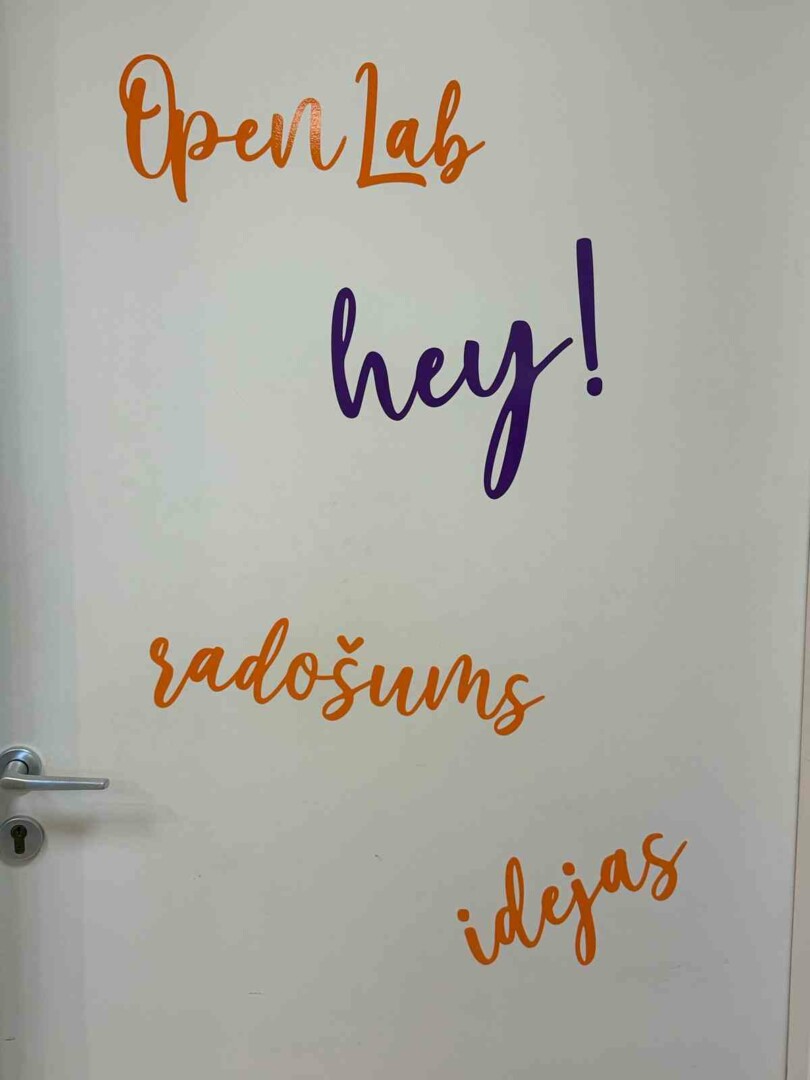 Open Lab
hey!
radošums
idejas